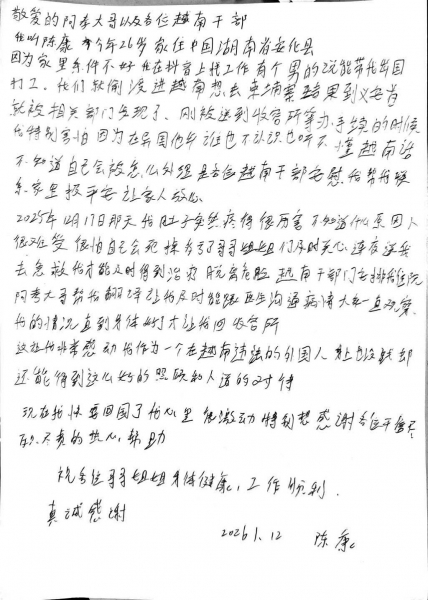 敬爱的阿孝大哥以及各位越南干部
我叫陈康 今年26岁 家住中国湖南省安化县
因为家里条件不好 我在抖音上找工作 有个男的说能带我出国
打工。我们就偷渡进越南想去柬埔寨 结果到义安省
就被相关部门发现了、刚被送到收容所等办手续的时候
我特别害怕 因为在异国他乡谁也不认识也听不懂越南话
不知道自己会被怎么处理 是各位越南干部安慰我帮我联
系家里报平安 让家人放心
2025年12月17日那天我肚子突然疼得很厉害 不知道什么原因人
很难受 很怕自己会死掉 各位哥哥姐姐们及时关心 连夜送我
去急救 我才能及时得到治疗 脱离危险 越南干部门安排我住院
阿孝大哥帮我翻译 让我及时能跟医生沟通病情 大家一直观察
我的情况直到身体好了才让我回收容所
这让我非常感动 我作为一个在越南违法的外国人 身上也没钱 却
还能得到这么好的照顾和人道的对待
现在我快要回国了 我心里很激动 特别想感谢各位干部不
不真的热心帮助
祝各位哥哥姐姐身体健康，工作顺利．
真诚感谢
2026.1.12 陈康